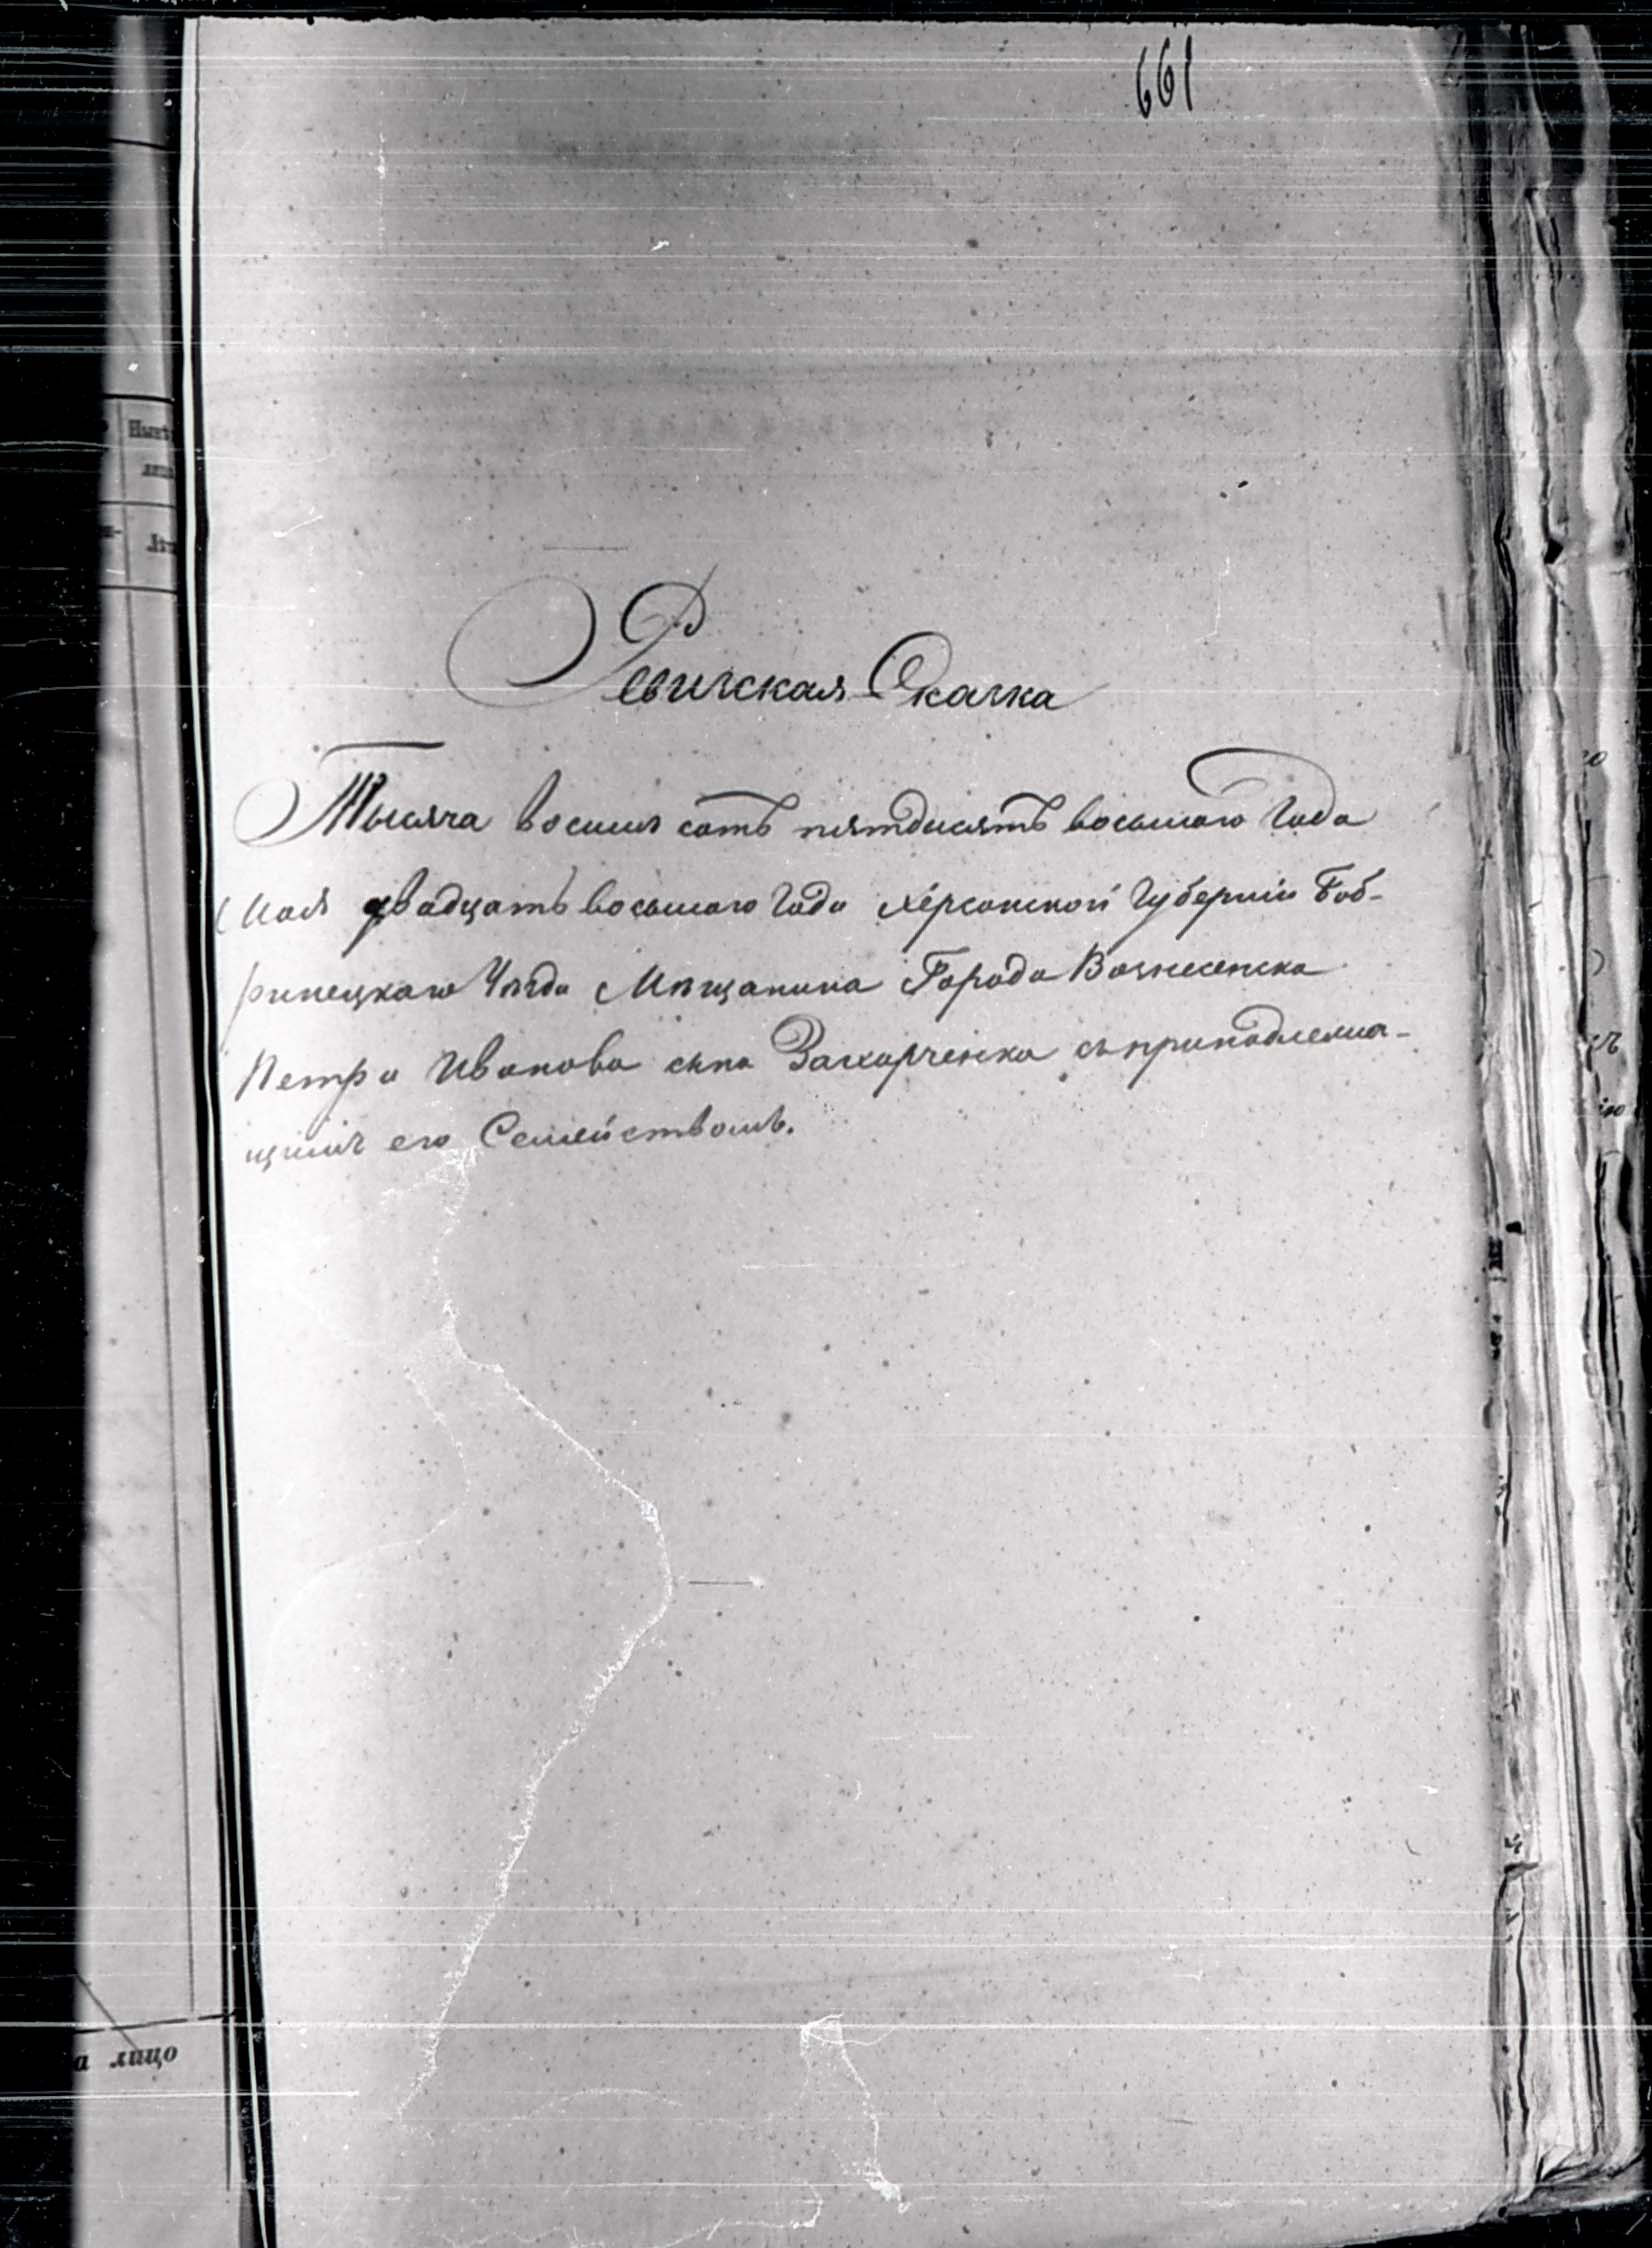 661
Ревиская Скаска
Тысяча восимь сотъ пятдисятъ восьмаго Года
Маія двадцатъ восьмаго Года Херсонской Губерніи Боб-
ринецкаго Уѣзда Мѣщанина Города Вознесенска
Петра Иванова сына Захарченка съ принадлежа-
щимъ его Семействомъ.
а лицо